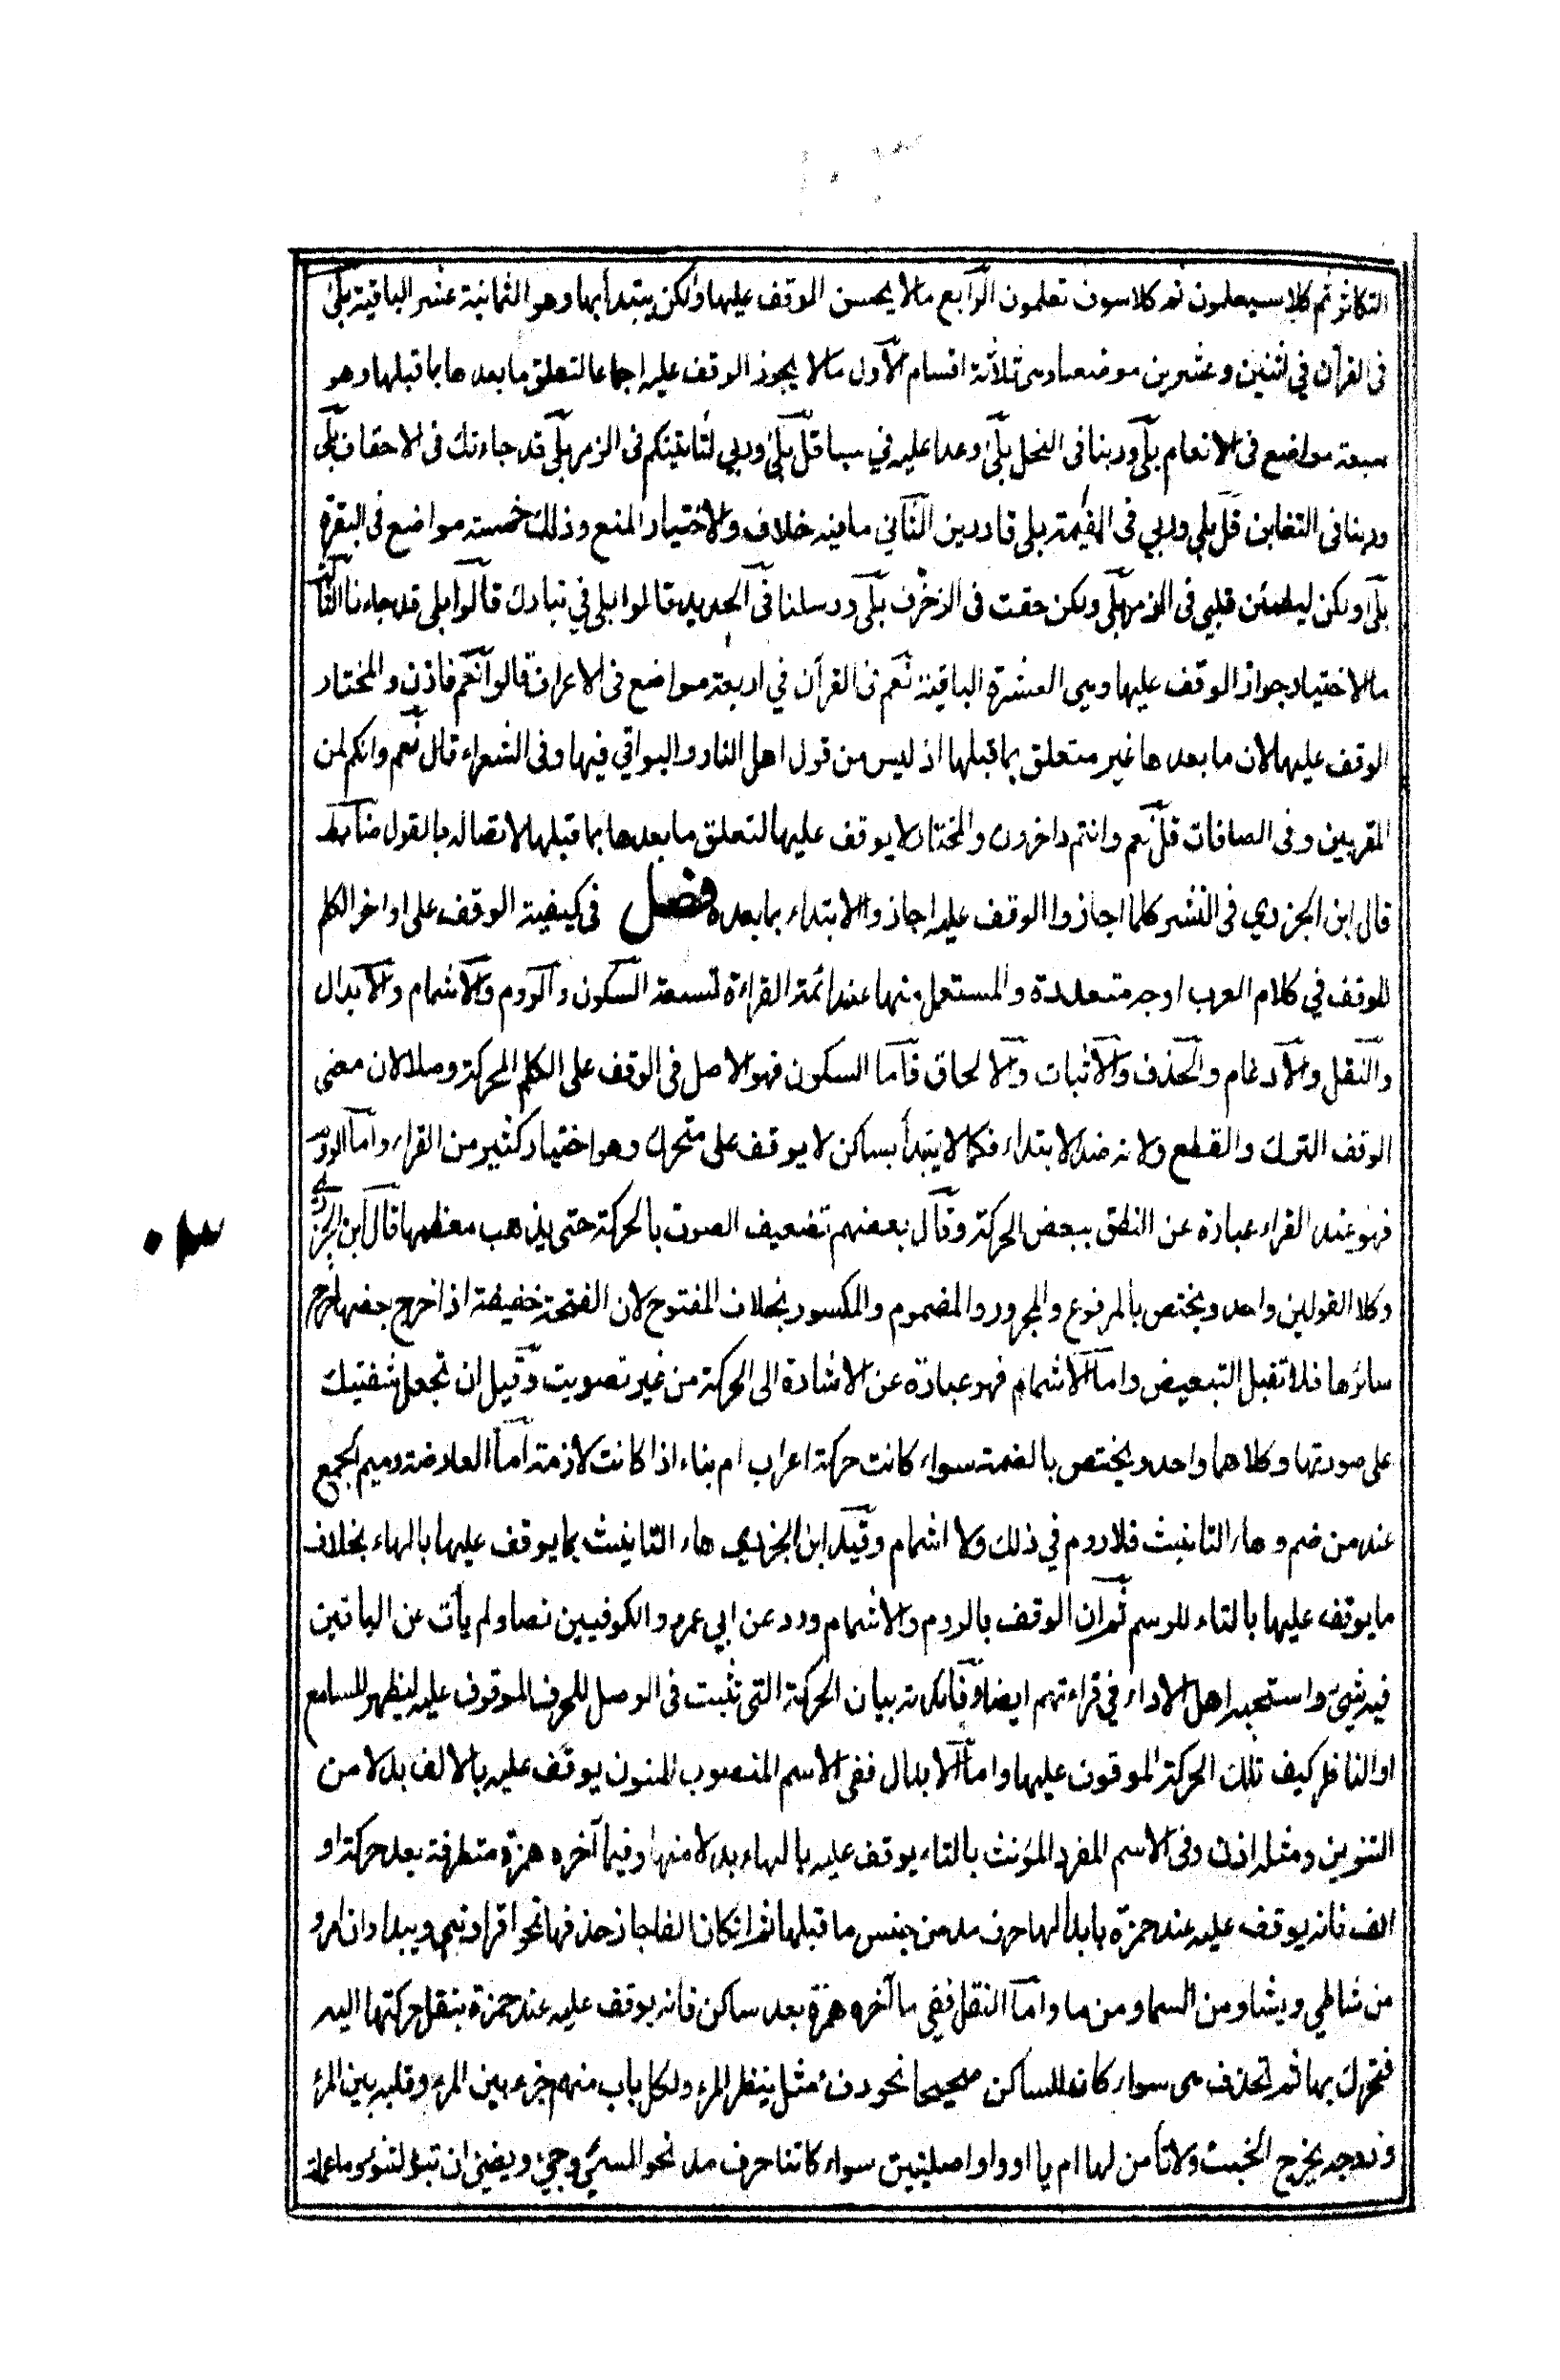 التكاثر ثم كلا سيعلمون ثم كلا سوف تعلمون الرابع ما لا يحسن الوقف عليها ولكن يبتدأ بها وهو الثمانية عشر الباقية بلى
فى القرآن في اثنين وعشرين موضعا وهى ثلاثة اقسام الاول ما لا يجوز الوقف عليه اجماعا لتعلق ما بعدها بما قبلها وهو
سبعة مواضع فى الانعام بلى وربنا فى النحل بلى وعدا عليه في سبا قل بلى وربي لتاتينكم فى الزمر بلى قد جاءتك فى الاحقاف بلى
وربنا فى التغابن قل بلي وربي فى القيمة بلى قادرين الثاني ما فيه خلاف والاختيار المنع وذلك خمسة مواضع فى البقرة
بلى ولكن ليطمئن قلبي فى الزمر بلى ولكن حقت فى الزخرف بلى ورسلنا فى الحديد قالوا بلى في تبارك قالوا بلى قد جاءنا الثالث
ما الاختيار جواز الوقف عليها وهى العشرة الباقية نعم فى القرآن في اربعة مواضع فى الاعراف قالوا نعم فاذن والمختار
الوقف عليها لان ما بعدها غير متعلق بما قبلها اذ ليس من قول اهل النار والبواقي فيها وفى الشعراء قال نعم وانكم لمن
المقربين وفى الصافات قل نعم وانتم داخرون والمختار لا يوقف عليها لتعلق ما بعدها بما قبلها لاتصاله بالقول ضابط
قال ابن الجزري فى النشر كلما اجازوا الوقف عليه اجازوا الابتداء بما بعده فصل فى كيفية الوقف على اواخر الكلم
للوقف في كلام العرب اوجه متعددة والمستعمل منها عند ائمة القراءة تسعة السكون والروم والاشمام والابدال
والنقل والادغام والحذف والاثبات والالحاق فاما السكون فهو الاصل فى الوقف على الكلم المحركة وصلا لان معنى
الوقف الترك والقطع ولانه ضد الابتداء فكما لا يبتدأ بساكن لا يوقف على متحرك وهو اختيار كثير من القراء واما الروم
فهو عند القراء عبارة عن النطق ببعض الحركة وقال بعضهم تضعيف الصوت بالحركة حتى يذهب معظمها قال ابن الجزري
وكلا القولين واحد ويختص بالمرفوع والمجرور والمضموم والمكسور بخلاف المفتوح لان الفتحة خفيفة اذا خرج بعضها خرج
سائرها فلا تقبل التبعيض واما الاشمام فهو عبارة عن الاشارة الى الحركة من غير تصويت وقيل ان تجعل شفتيك
على صورتها وكلاهما واحد ويختص بالضمة سواء كانت حركة اعراب ام بناء اذا كانت لازمة اما العارضة وميم الجمع
عند من ضم وهاء التانيث فلا روم في ذلك ولا اشمام وقيد ابن الجزري هاء التانيث بما يوقف عليها بالهاء بخلاف
ما يوقف عليها بالتاء للرسم ثم ان الوقف بالروم والاشمام ورد عن ابي عمرو والكوفيين نصا ولم يأت عن الباقين
فيه شئ واستحبه اهل الاداء في قراءتهم ايضا وفائدته بيان الحركة التى تثبت فى الوصل للحرف الموقوف عليه ليظهر للسامع
او الناظر كيف تلك الحركة الموقوف عليها واما الابدال ففى الاسم المنصوب المنون يوقف عليه بالالف بدلا من
التنوين ومثله اذن وفى الاسم المفرد المؤنث بالتاء يوقف عليه بالهاء بدلا منها وفيما آخره همزة متطرفة بعد حركة او
الف فانه يوقف عليه عند حمزة بابدالها حرف مد من جنس ما قبلها ثم ان كان الفا جاز حذفها نحو اقرا ونبي ويبدا وان امرو
من شاطي ويشا ومن السما ومن ما واما النقل ففى ما آخره همزة بعد ساكن فانه يوقف عليه عند حمزة بنقل حركتها اليه
فتحرك بها ثم تحذف هى سواء كان الساكن صحيحا نحو دفء مثل ينظر المرء ولكل باب منهم جزء بين المرء وقلبه بين المرء
وزوجه يخرج الخبث ولا ثامن لها ام يا او واو اصليتين سواء كانتا حرف مد نحو المسئ وجئ ويضئ ان تبوء لتنوء وما عملت